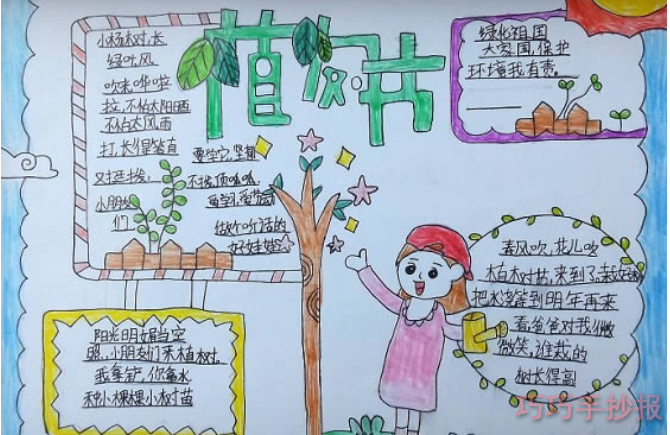 植树节
小杨树,长
轻吹风
吹来哗啦
拉,不怕太阳晒
不怕大风雨
打,长得笔直
又挺拔,
小朋友
们
要学它,坚持
不挑
做个听话的
好娃娃
绿化祖国
大家园,保护
环境我有责。
阳光明媚当空
照,小朋友们来植树,
我拿铲,你拿水
种小棵棵小树苗
春风吹,花儿吹
来到了
把水浇
到明年再来
看,爸爸对我微
微笑,谁栽的
树长得高
巧巧手抄报